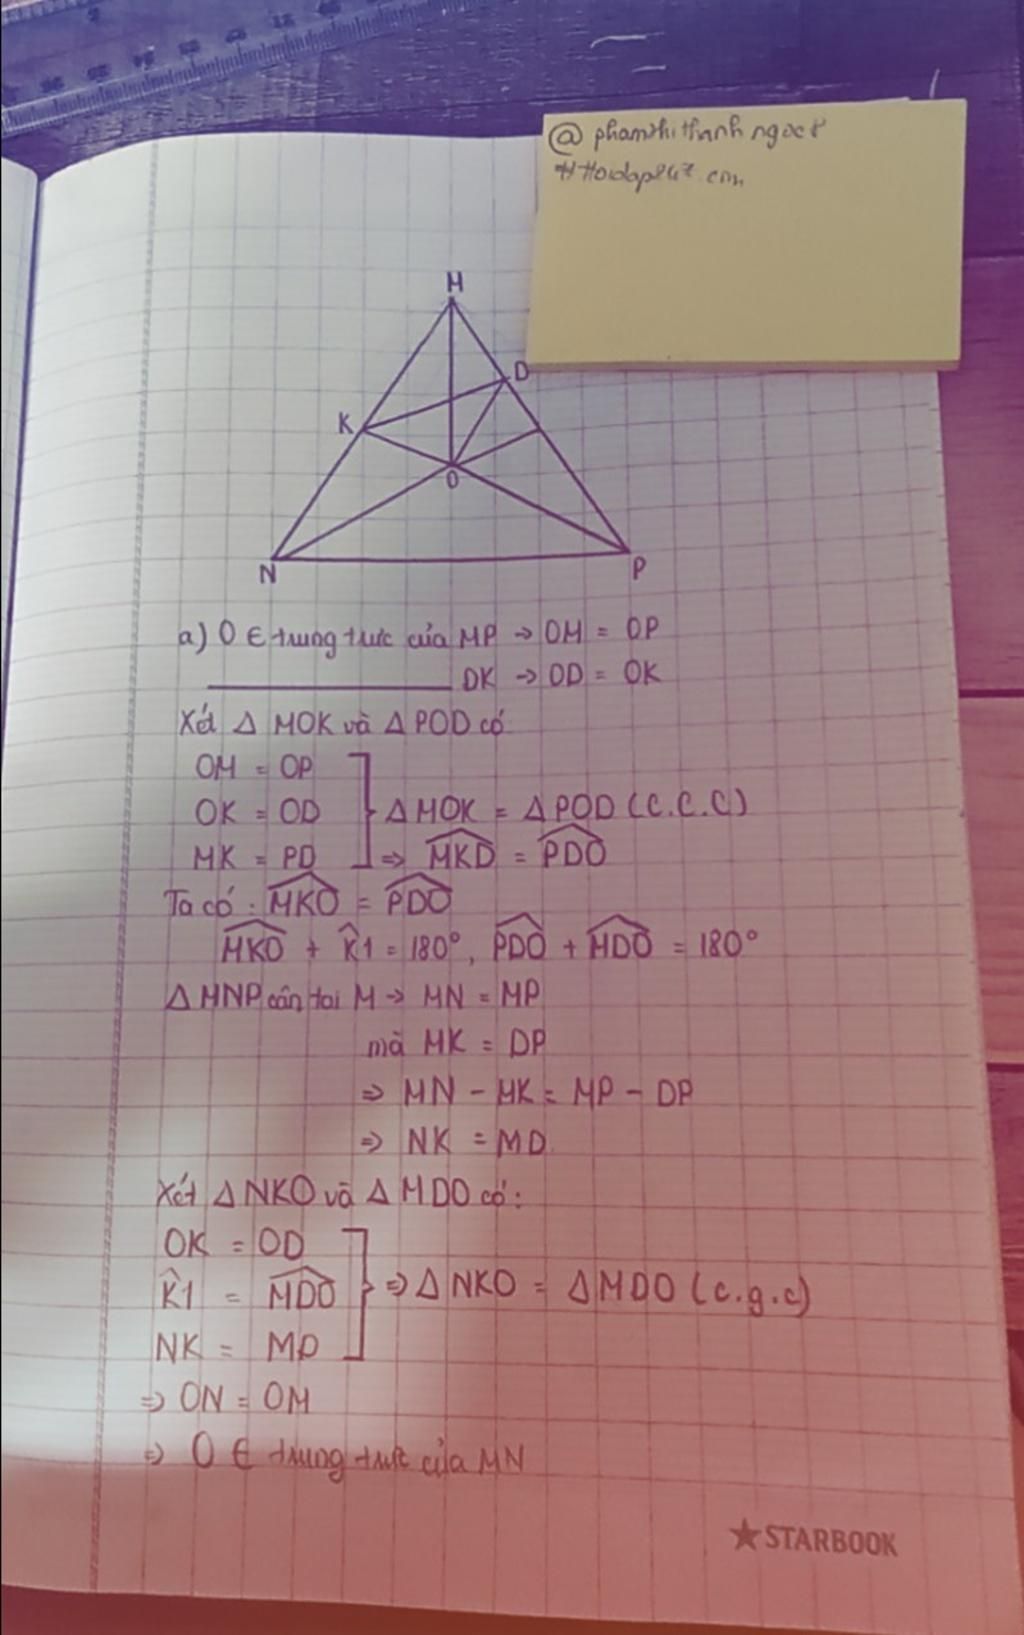 @ phamthithanhngoc8
# Hoidap247.com
M
D
K
O
N
P
a) O ∈ trung trực của MP → OM = OP
____________ DK → OD = OK
Xét Δ MOK và Δ POD có
OM = OP
OK = OD } Δ MOK = Δ POD (C.C.C)
MK = PD ⇒ \widehat{MKD} = \widehat{PDO}
Ta có: \widehat{MKO} = \widehat{PDO}
\widehat{MKO} + \widehat{K}1 = 180°, \widehat{PDO} + \widehat{MDO} = 180°
Δ MNP cân tại M → MN = MP
mà MK = DP
⇒ MN - MK = MP - DP
⇒ NK = MD
Xét Δ NKO và Δ MDO có:
OK = OD
\widehat{K}1 = \widehat{MDO} } ⇒ Δ NKO = Δ MDO (c.g.c)
NK = MD
⇒ ON = OM
⇒ O ∈ trung trực của MN
★STARBOOK